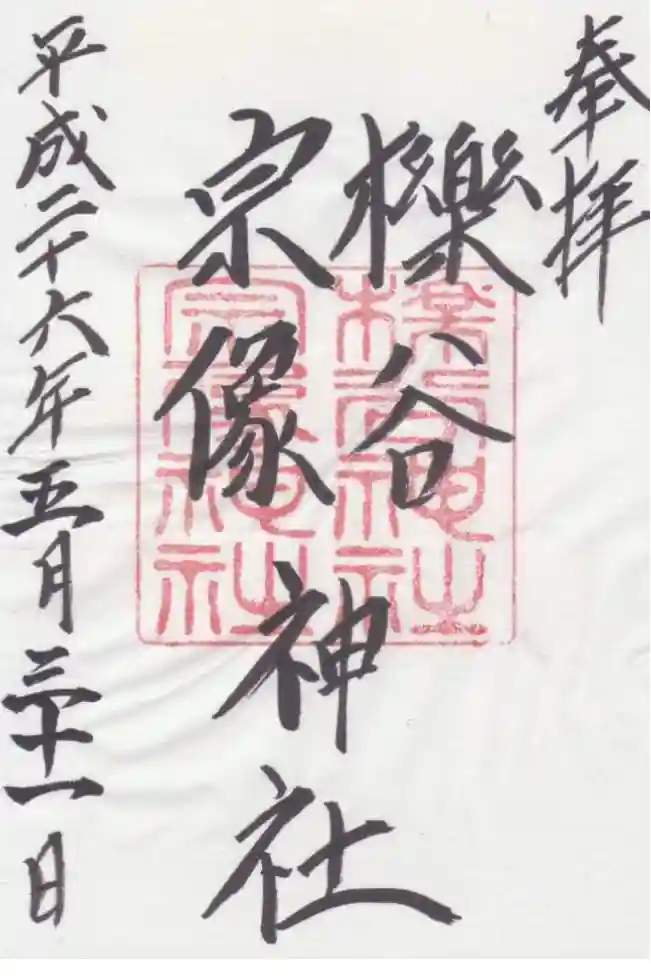 奉拝
櫟谷
宗像
神社
櫟谷神社
宗像神社
平成二十六年五月三十一日